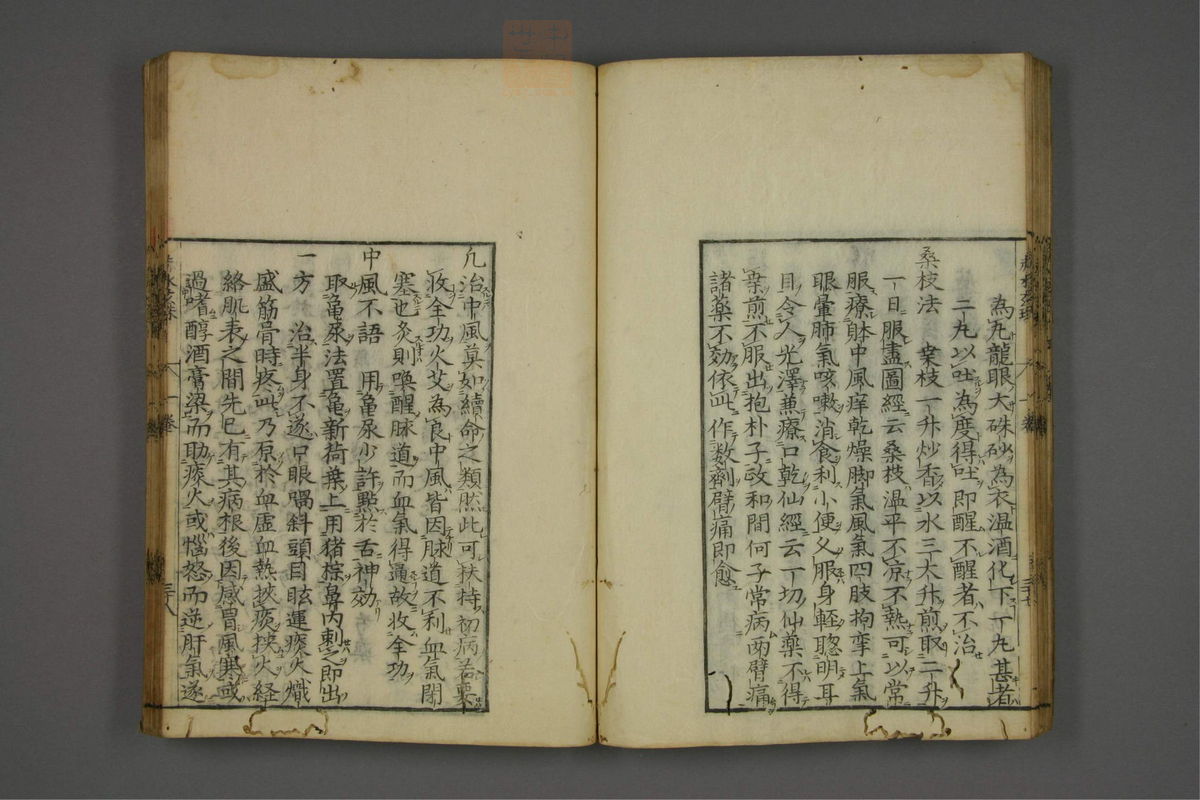 為九龍眼大硃砂為衣温酒化下一九甚者
二九以吐為度得吐即醒不醒者不治
桑枝法　桒枝一升炒香以水三大升煎取二升
一日服盡圖經云桑枝温平不凉不熱可以常
服療躰中風痒乾燥脚氣風氣四肢拘挛上氣
眼暈肺氣咳嗽消食利小便久服身軽聦明耳
目令人光澤兼療口乾仙經云一切仙藥不得
桒煎不服出抱朴子政和間何子常病兩臂痛
諸藥不効依此作数劑臂痛即愈
凢治中風莫如續命之類然此可扶持初病若要
收全功火艾為良中風皆因脉道不利血氣閉
塞也灸則喚醒脉道而血氣得通故收全功
中風不語　用亀尿少許點於舌神効
取亀尿法置亀新荷葉上用猪棕鼻内刺之即出
一方　治半身不遂口眼喎斜頭目眩運痰火熾
盛筋骨時疼此乃原於血虚血熱挾痰挾火経
絡肌表之間先已有其病根後因感冒風寒或
過嗜醇酒膏梁而助痰火或惱怒而逆肝氣遂